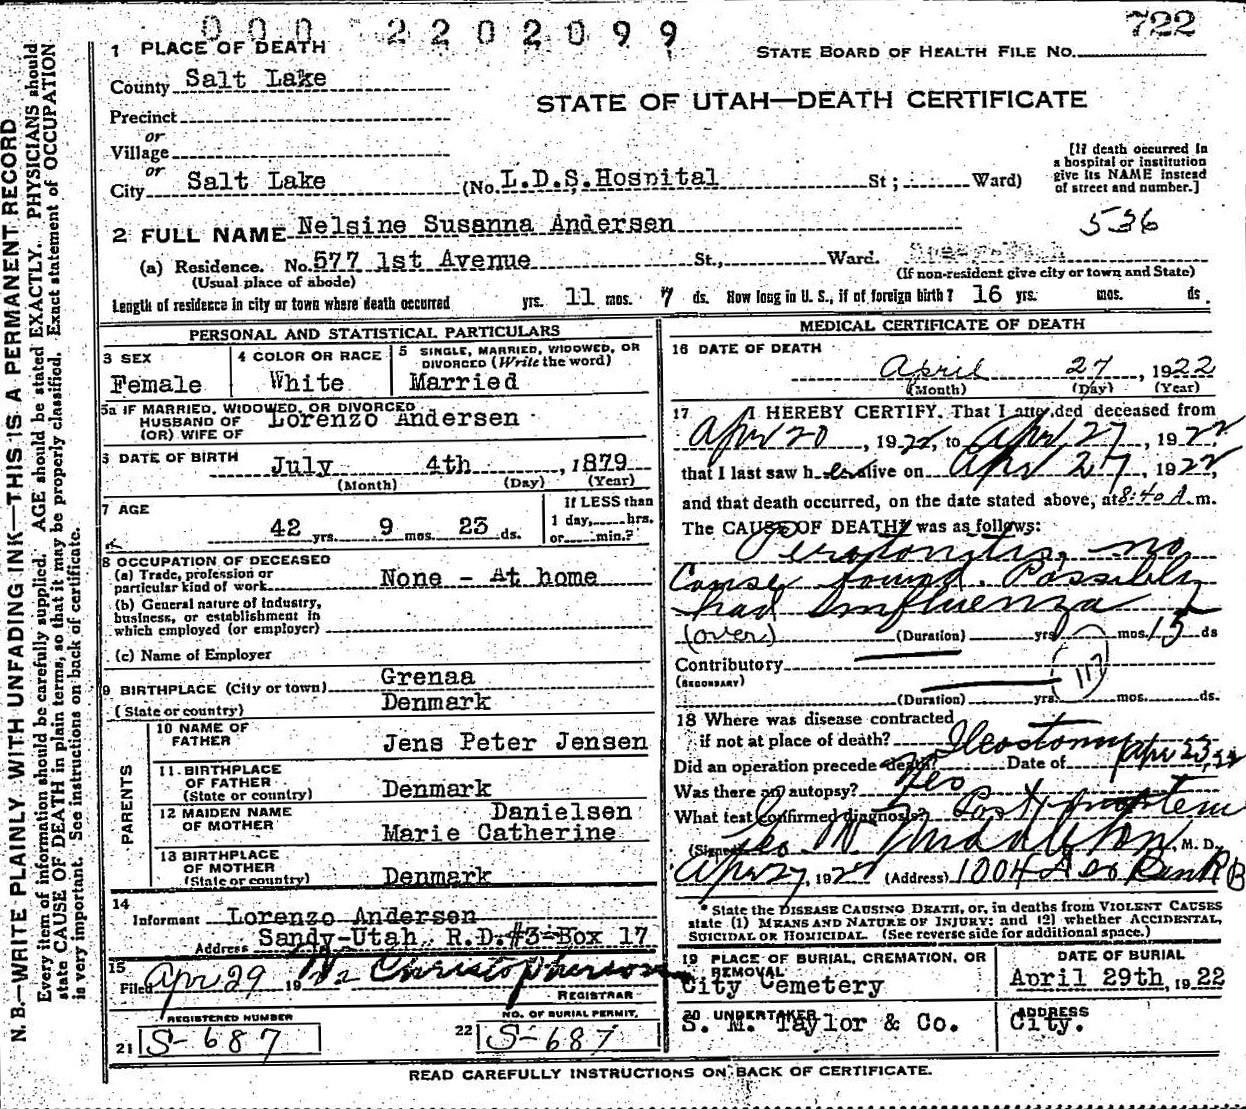 000 2202099
722
1 PLACE OF DEATH
STATE BOARD OF HEALTH FILE NO.
County Salt Lake
STATE OF UTAH—DEATH CERTIFICATE
Precinct
or
Village
or
City Salt Lake (No. L.D.S. Hospital St; Ward)
[If death occurred in a hospital or institution give its NAME instead of street and number.]
2 FULL NAME Nelsine Susanna Andersen
536
(a) Residence. No. 577 1st Avenue St., Ward.
(Usual place of abode)
(If non-resident give city or town and State)
Length of residence in city or town where death occurred yrs. 11 mos. 7 ds. How long in U. S., if of foreign birth? 16 yrs. mos. ds.
PERSONAL AND STATISTICAL PARTICULARS
3 SEX
Female
4 COLOR OR RACE
White
5 SINGLE, MARRIED, WIDOWED, OR DIVORCED (Write the word)
Married
5a IF MARRIED, WIDOWED, OR DIVORCED
HUSBAND OF
(OR) WIFE OF
Lorenzo Andersen
6 DATE OF BIRTH
July 4th, 1879
(Month) (Day) (Year)
7 AGE
42 yrs. 9 mos. 23 ds.
If LESS than
1 day, hrs.
or min.?
8 OCCUPATION OF DECEASED
(a) Trade, profession or particular kind of work None - At home
(b) General nature of industry, business, or establishment in which employed (or employer)
(c) Name of Employer
9 BIRTHPLACE (City or town) Grenaa
(State or country) Denmark
PARENTS
10 NAME OF FATHER Jens Peter Jensen
11 BIRTHPLACE OF FATHER (State or country) Denmark
12 MAIDEN NAME OF MOTHER Danielsen
Marie Catherine
13 BIRTHPLACE OF MOTHER (State or country) Denmark
14
Informant Lorenzo Andersen
Address Sandy-Utah R.D.#3-Box 17
15
Filed Apr 29 19 Christopherson
REGISTRAR
REGISTERED NUMBER
21 S-687
NO. OF BURIAL PERMIT.
22 S-687
MEDICAL CERTIFICATE OF DEATH
16 DATE OF DEATH
April 27, 1922
(Month) (Day) (Year)
17 I HEREBY CERTIFY, That I attended deceased from
Apr 20, 1922, to Apr 27, 1922
that I last saw her alive on Apr 27, 1922
and that death occurred, on the date stated above, at 8:40 A.m.
The CAUSE OF DEATH* was as follows:
Peritonitis, no
cause found. Possibly
had Influenza
(over) (Duration) yrs mos. 15 ds
Contributory
(SECONDARY)
117
(Duration) yrs. mos. ds.
18 Where was disease contracted
if not at place of death?
Did an operation precede death? Ileostomy Date of Apr 23, 22
Was there an autopsy? Yes
What test confirmed diagnosis? Post mortem
(Signed) Geo W Middleton, M. D.
Apr 27, 1922 (Address) 1004 Des Bank B
* State the DISEASE CAUSING DEATH, or, in deaths from VIOLENT CAUSES state (1) MEANS AND NATURE OF INJURY; and (2) whether ACCIDENTAL, SUICIDAL OR HOMICIDAL. (See reverse side for additional space.)
19 PLACE OF BURIAL, CREMATION, OR REMOVAL
City Cemetery
DATE OF BURIAL
April 29th, 1922
20 UNDERTAKER
S. M. Taylor & Co.
ADDRESS
City.
READ CAREFULLY INSTRUCTIONS ON BACK OF CERTIFICATE.
N. B.—WRITE PLAINLY WITH UNFADING INK—THIS IS A PERMANENT RECORD
Every item of information should be carefully supplied. AGE should be stated EXACTLY. PHYSICIANS should
state CAUSE OF DEATH in plain terms, so that it may be properly classified. Exact statement of OCCUPATION
is very important. See instructions on back of certificate.